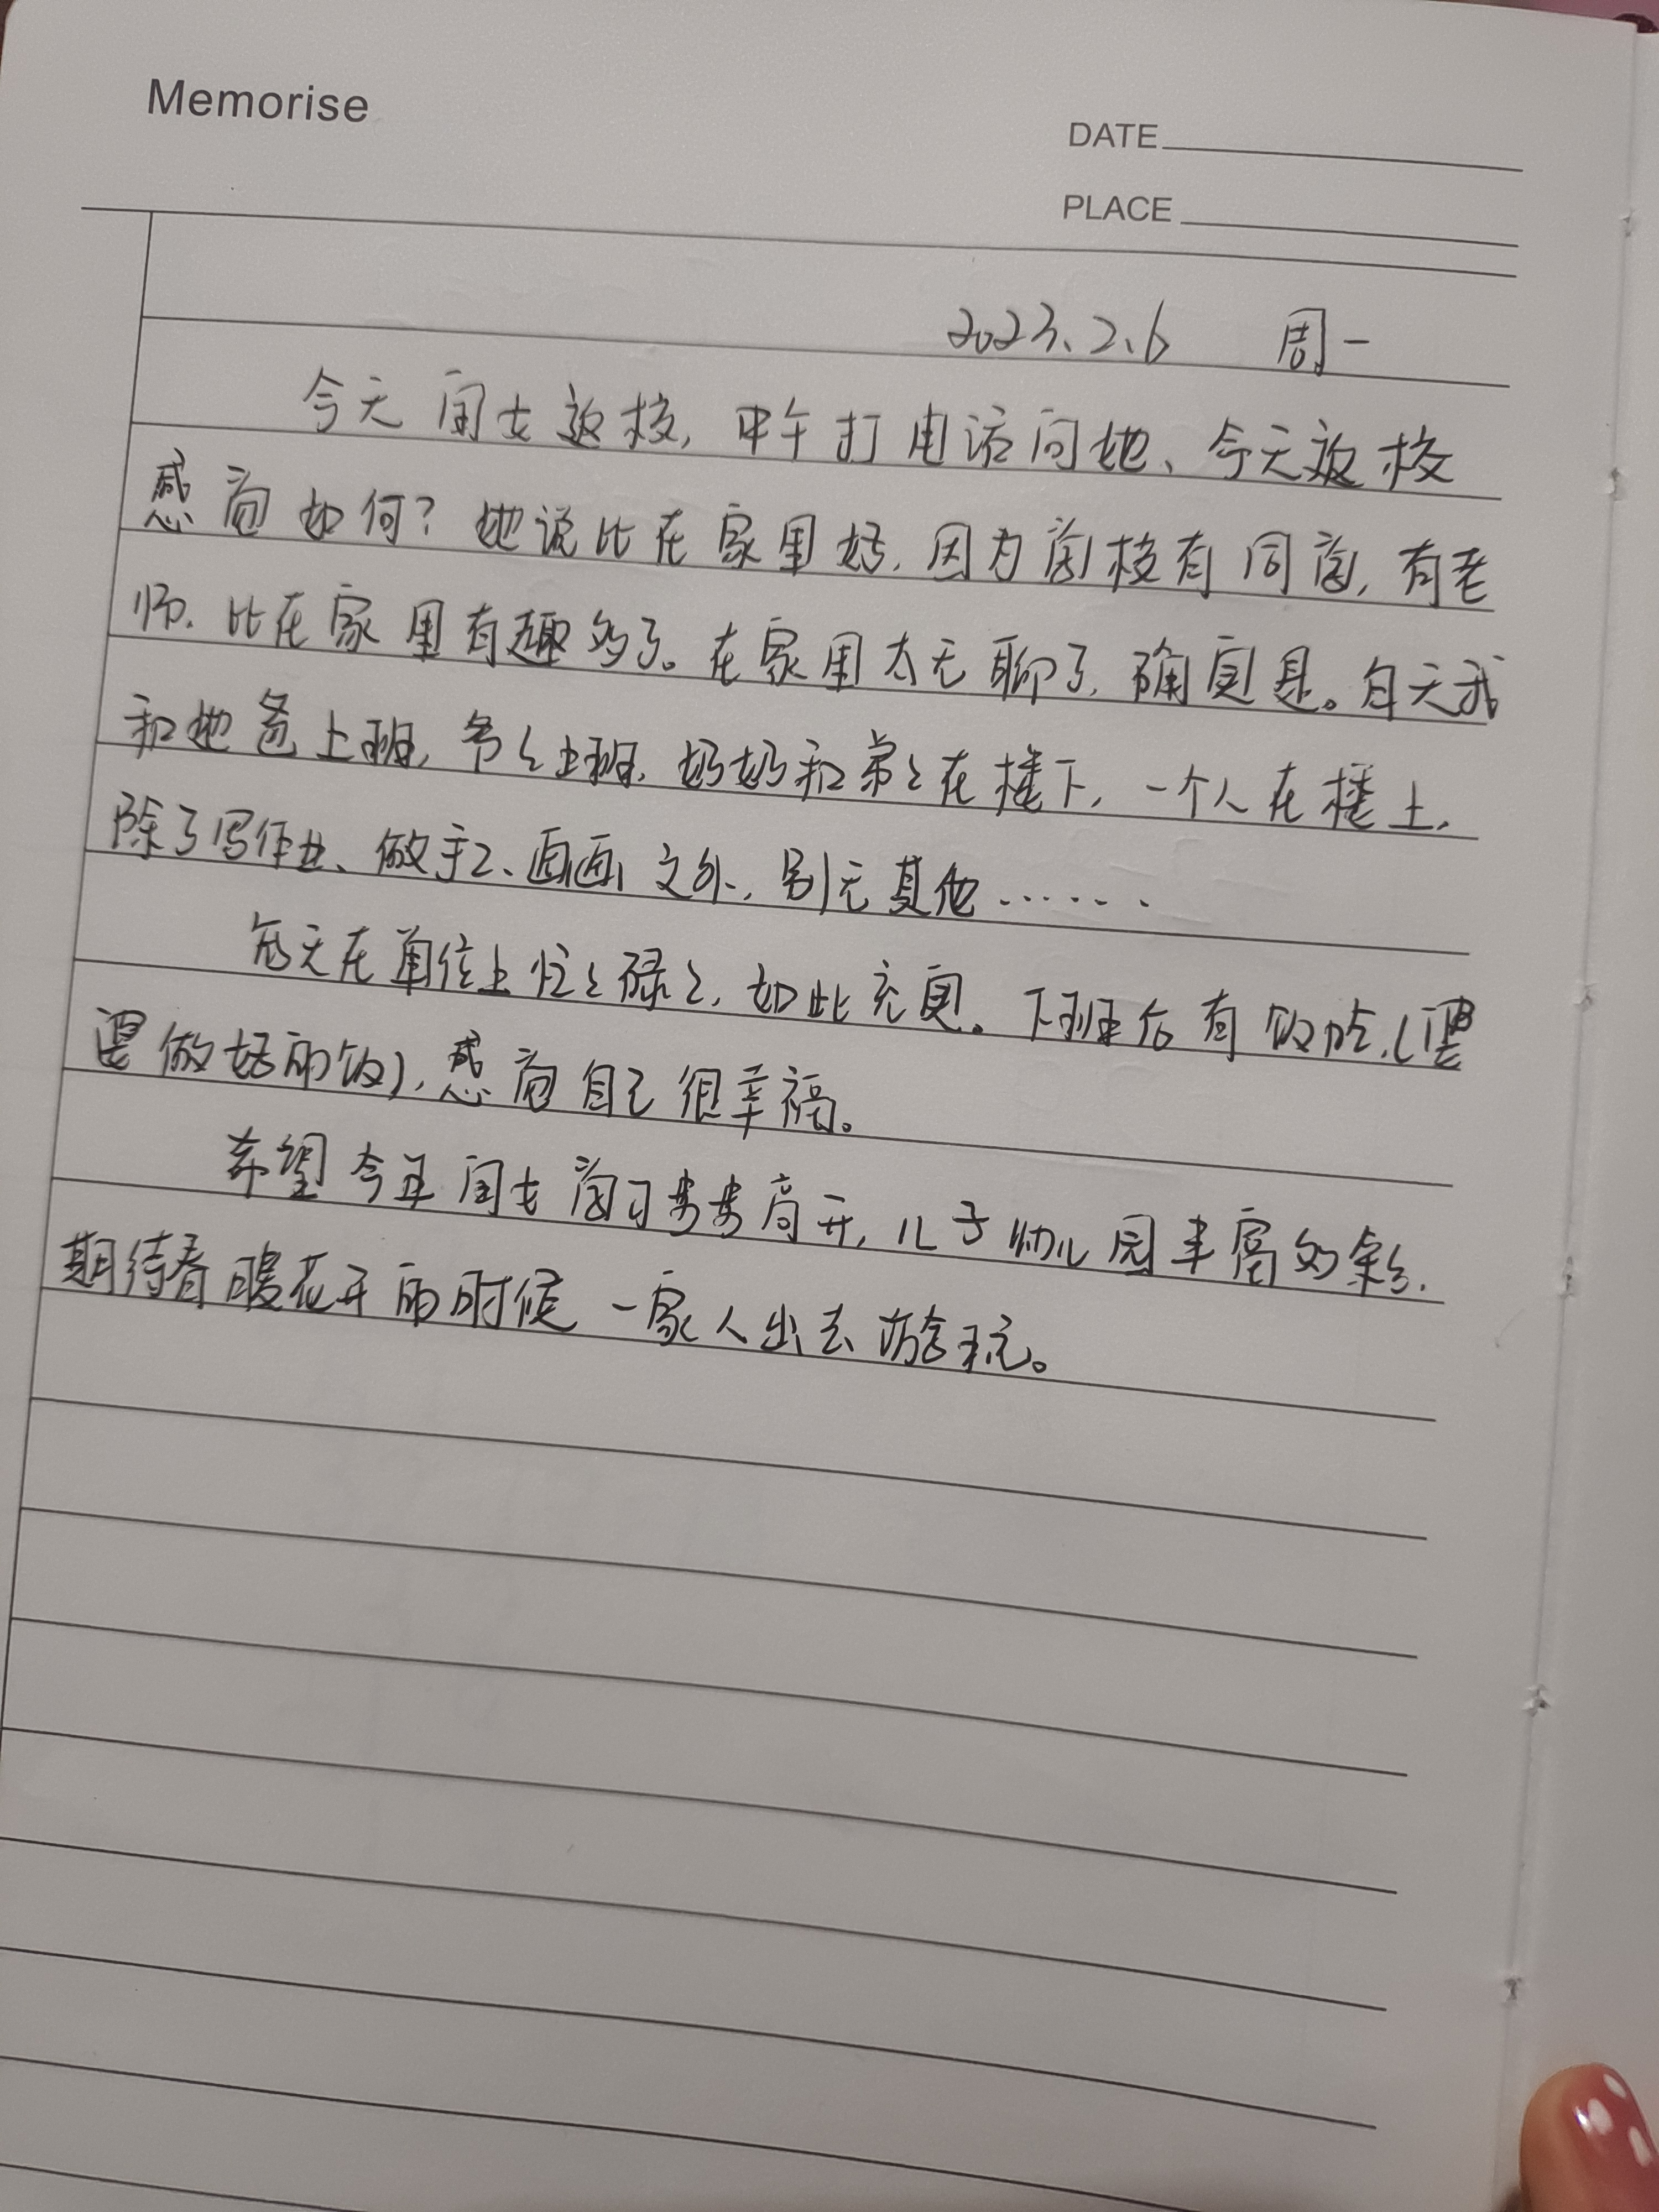 Memorise
DATE
PLACE
2023.2.6 周一
今天闺女返校，中午打电话问她、今天返校
感觉如何？她说比在家里好，因为学校有同学，有老
师，比在家里有趣多了。在家里太无聊了，确实是。白天我
和她爸上班，爷爷上班，奶奶和弟弟在楼下，一个人在楼上，
除了写作业、做手工、画画之外，别无其他……
每天在单位上忙忙碌碌，如此充实。下班后有饭吃，(婆
婆做好的饭)，感觉自己很幸福。
希望今年闺女学习步步高升，儿子幼儿园丰富多彩，
期待春暖花开的时候一家人出去游玩。